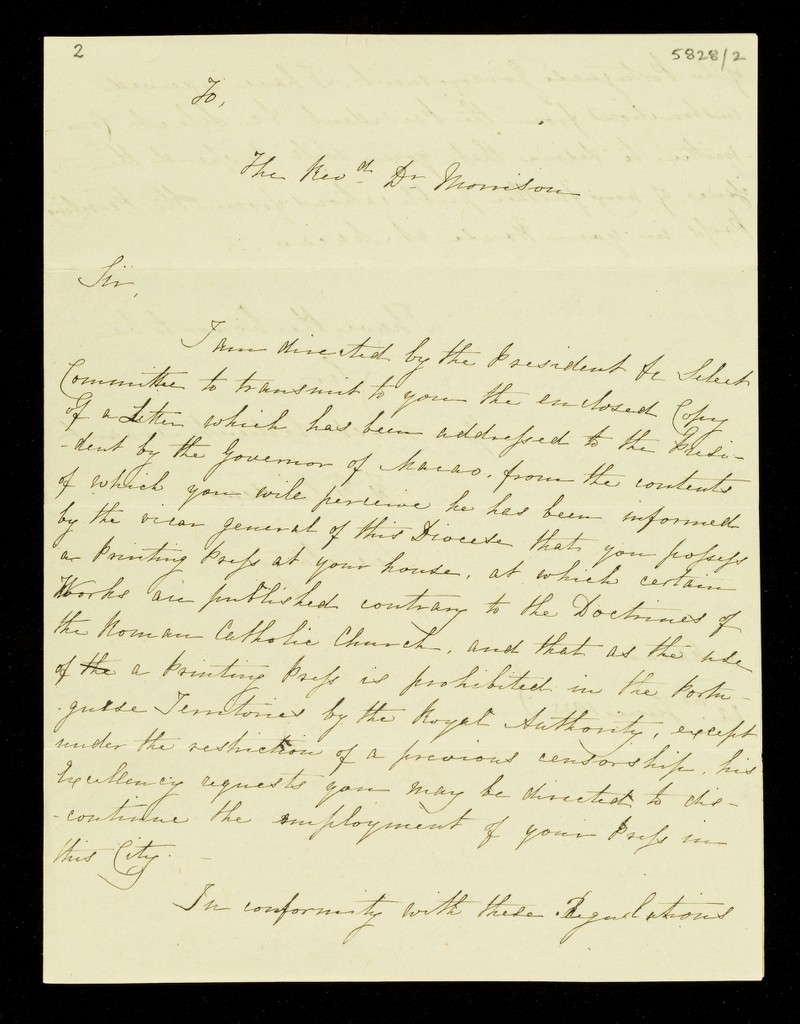 2
5828/2
To,
The Revd Dr Morrison
Sir,
I am directed by the President &c Select
Committee to transmit to you the enclosed Copy
of a Letter which has been addressed to the Presi-
-dent by the Governor of Macao, from the contents
of which you will perceive he has been informed
by the vicar general of this Diocese that you possess
a Printing Press at your house, at which certain
Works are published contrary to the Doctrines of
the Roman Catholic Church, and that as the use
of the a Printing Press is prohibited in the Portu-
-guese Territories by the Royal Authority, except
under the restriction of a previous censorship, his
Excellency requests you may be directed to dis-
-continue the employment of your Press in
this City.
In conformity with these Regulations